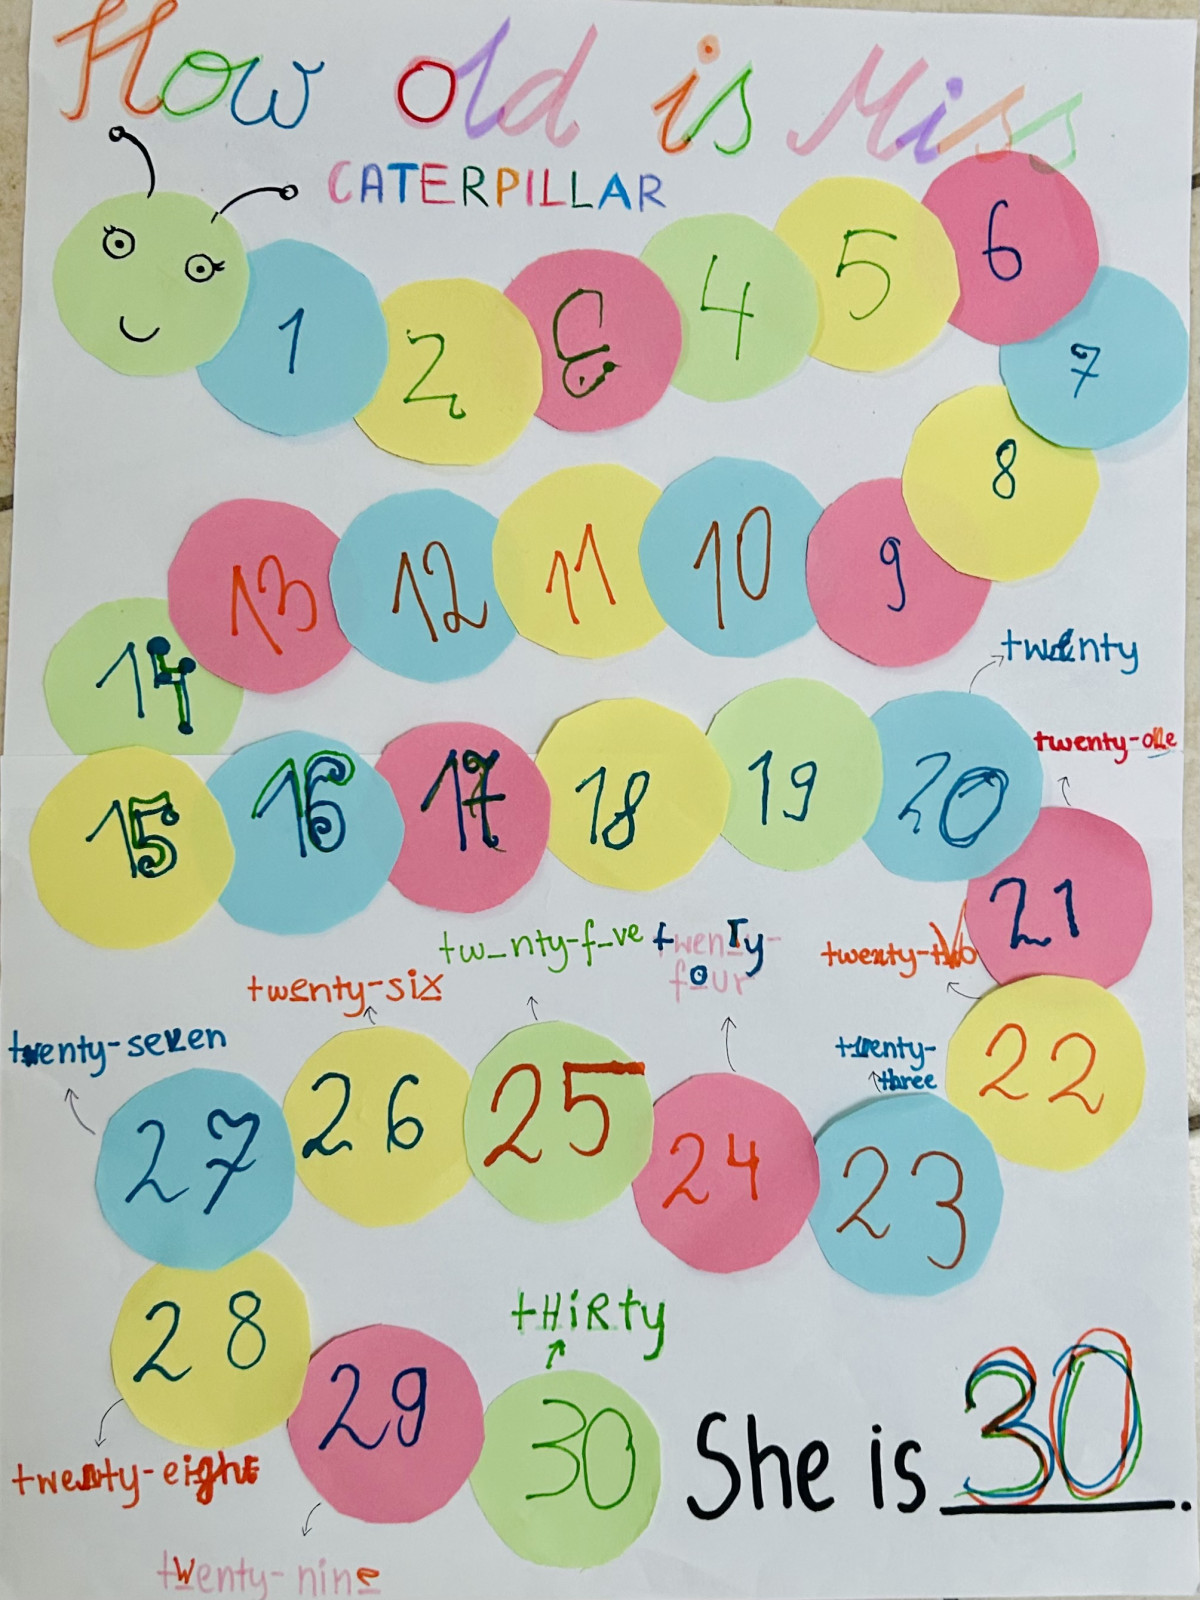 How old is Miss
CATERPILLAR
1 2 3 4 5 6
7
8
13 12 11 10 9
14
twenty
twenty-one
15 16 17 18 19 20
21
tw_nty-f_ve twenTy-
four
twenty-two
twenty-six
twenty-seven
twenty-
three
27 26 25 24 23 22
28
tHiRty
29 30
She is 30.
twenty-eight
twenty-nine